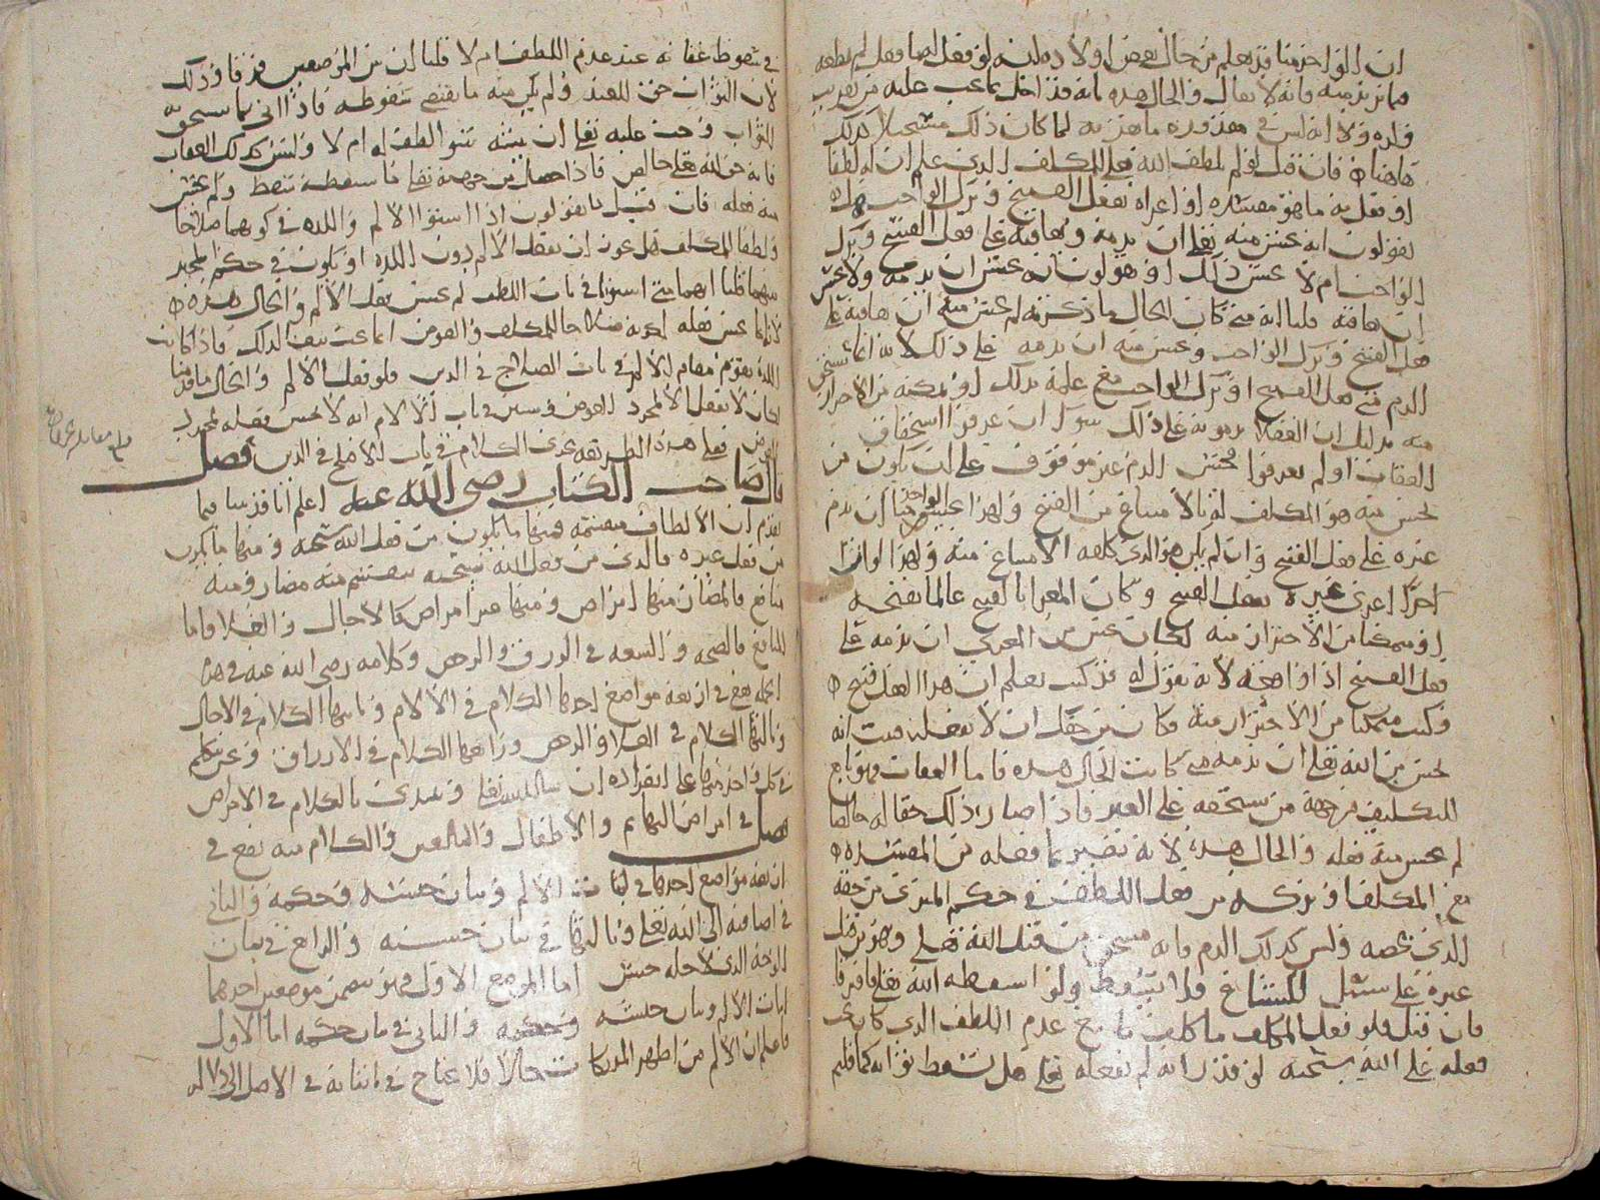 ان الواحد منا قد يعلم من حال بعض اولاده انه لو فعل لصا فعل لم يطعه
فما يريد منه فانه لا يقال والحال هذه بانه قد اخل بما يجب عليه من
ولده ولا انه ليس في مقدوره ما هذبه لما كان ذلك مستحيلا كذلك
هاهنا فان قيل لو لم يلطف الله تعلى للمكلف الذي علم ان له لطفا
او فعل به ما هو مفسده او اغراه بفعل القبيح وترك الواجب هل
تقولون انه يحسن منه تعلى ان يذمه ويعاقبه على فعل القبيح وترك
الواجب ام لا يحسن ذلك او تقولون انه يحسن ان يذمه ولا يحسن
ان يعاقبه قلنا انه متى كان الحال ما ذكرته لم يحسن منه ان يعاقبه على
فعل القبيح وترك الواجب ويحسن منه ان يذمه على ذلك لانه انما يستحق
الذم متى فعل القبيح او ترك الواجب مع علمه بذلك او تمكنه من الاحتراز
منه بدليل ان العقلا يذمونه على ذلك سوا ان عرفوا استحقاق
العقاب او لم يعرفوا فحسن الذم غير موقوف على ان يكون من
يحسن منه هو المكلف له بالامتناع من القبيح ولهذا يحسن من الواحد منا ان يذم
غيره على فعل القبيح وان لم يكن هو الذي كلفه الامتناع منه ولهذا لو ان
احدنا اغرى غيره بفعل القبيح وكان المغرا بالقبيح عالما بقبحه
او متمكنا من الاحتراز منه لكان يحسن من المغري ان يذمه على
فعل القبيح اذا واقعه لانه يقول له قد كنت تعلم ان هذا الفعل قبيح
وكنت متمكنا من الاحتراز منه وكان من حقك ان لا تفعله فثبت انه
يحسن من الله تعلى ان يذمه متى كانت الحال هذه فاما العقاب فهو تابع
للتكليف من جهة من يستحقه على الغير فاذا صار ذلك حقا له خالصا
لم يحسن منه فعله والحال هذه لانه يصير بما فعله من المفسده
مع المكلف او تركه من فعل اللطف في حكم المبري من حقه
الذي يخصه وليس كذلك الذم فانه مستحق من قبل الله تعلى وهو من قبل
غيره على سبيل الشياع فلا يسقط ولو اسقطه الله تعلى فافترقا
فان قيل فلو فعل المكلف ما كلف مع عدم اللطف الذي كان يجب
فعله على الله سبحنه لو قدر انه لم يفعله تعلى هل يسقط ثوابه كما قلتم
في سقوط عقابه عند عدم اللطف ام لا قلنا ان بين الموضعين فرقا وذلك
لان الثواب حق للعبد ولم يكن منه ما يقتضي سقوطه فاذا اتى بما يستحق به
الثواب وجب عليه تعلى ان يثيبه سوا لطف له ام لا وليس كذلك العقاب
فانه حق لله تعلى خالص فاذا حصل من جهته تعلى ما يسقطه سقط ولم يحسن
منه فعله فان قيل ما تقولون اذا استوا الالم واللذه في كونهما صلاحا
ولطفا للمكلف هل يحسن ان يفعل الالم دون اللذه او يكون في حكم المخير
بينهما قلنا انهما متى استويا في باب اللطف لم يحسن فعل الالم والحال هذه
لانه انما يحسن فعله لكونه صلاحا للمكلف والعوض انما يجب تبعا لذلك فاذا كانت
اللذه تقوم مقام الالم في باب الصلاح في الدين فلو فعل الالم والحال ما قدمنا
لكان لا يفعل الا لمجرد العوض وسنبين في باب الالام انه لا يحسن فعله لمجرد
العوض فعلى هذه الطريقه يجري الكلام في باب الاصلح في الدين فصل
قال صاحب الكتاب رضى الله عنه اعلم انا قد بينا فيما
تقدم ان الالطاف منقسمه فمنها ما يكون من فعل الله سبحنه ومنها ما يكون
من فعل غيره فالذي من فعل الله سبحنه ينقسم منه مضار ومنه
منافع فالمضار منها امراض ومنها غير امراض كالاجال والغلا واما
المنافع فالصحه والسعه في الارزاق والرخص وكلامه رضى الله عنه في هذه
الجمله يقع في اربعه مواضع احدها الكلام في الالام وثانيها الكلام في الاجال
وثالثها الكلام في الغلا والرخص ورابعها الكلام في الارزاق ونحن نتكلم
في كل واحد منها على انفراده ان شا الله تعلى ونبدى بالكلام في الامراض
فصل في امراض البهايم والاطفال والبالغين والكلام منه يقع في
اربعه مواضع احدها في اثبات الالم وبيان جنسه وحكمه والثاني
في اضافته الى الله تعلى وثالثها في بيان حسنه والرابع في بيان
الوجه الذي لاجله حسن اما الموضع الاول فهو يتضمن موضعين احدهما
اثبات الالم وبيان جنسه وحكمه والثاني في بيان حكمه اما الاول
فاعلم ان الالم من اظهر المدركات حالا فلا يحتاج في اثباته في الاصل الى دلاله